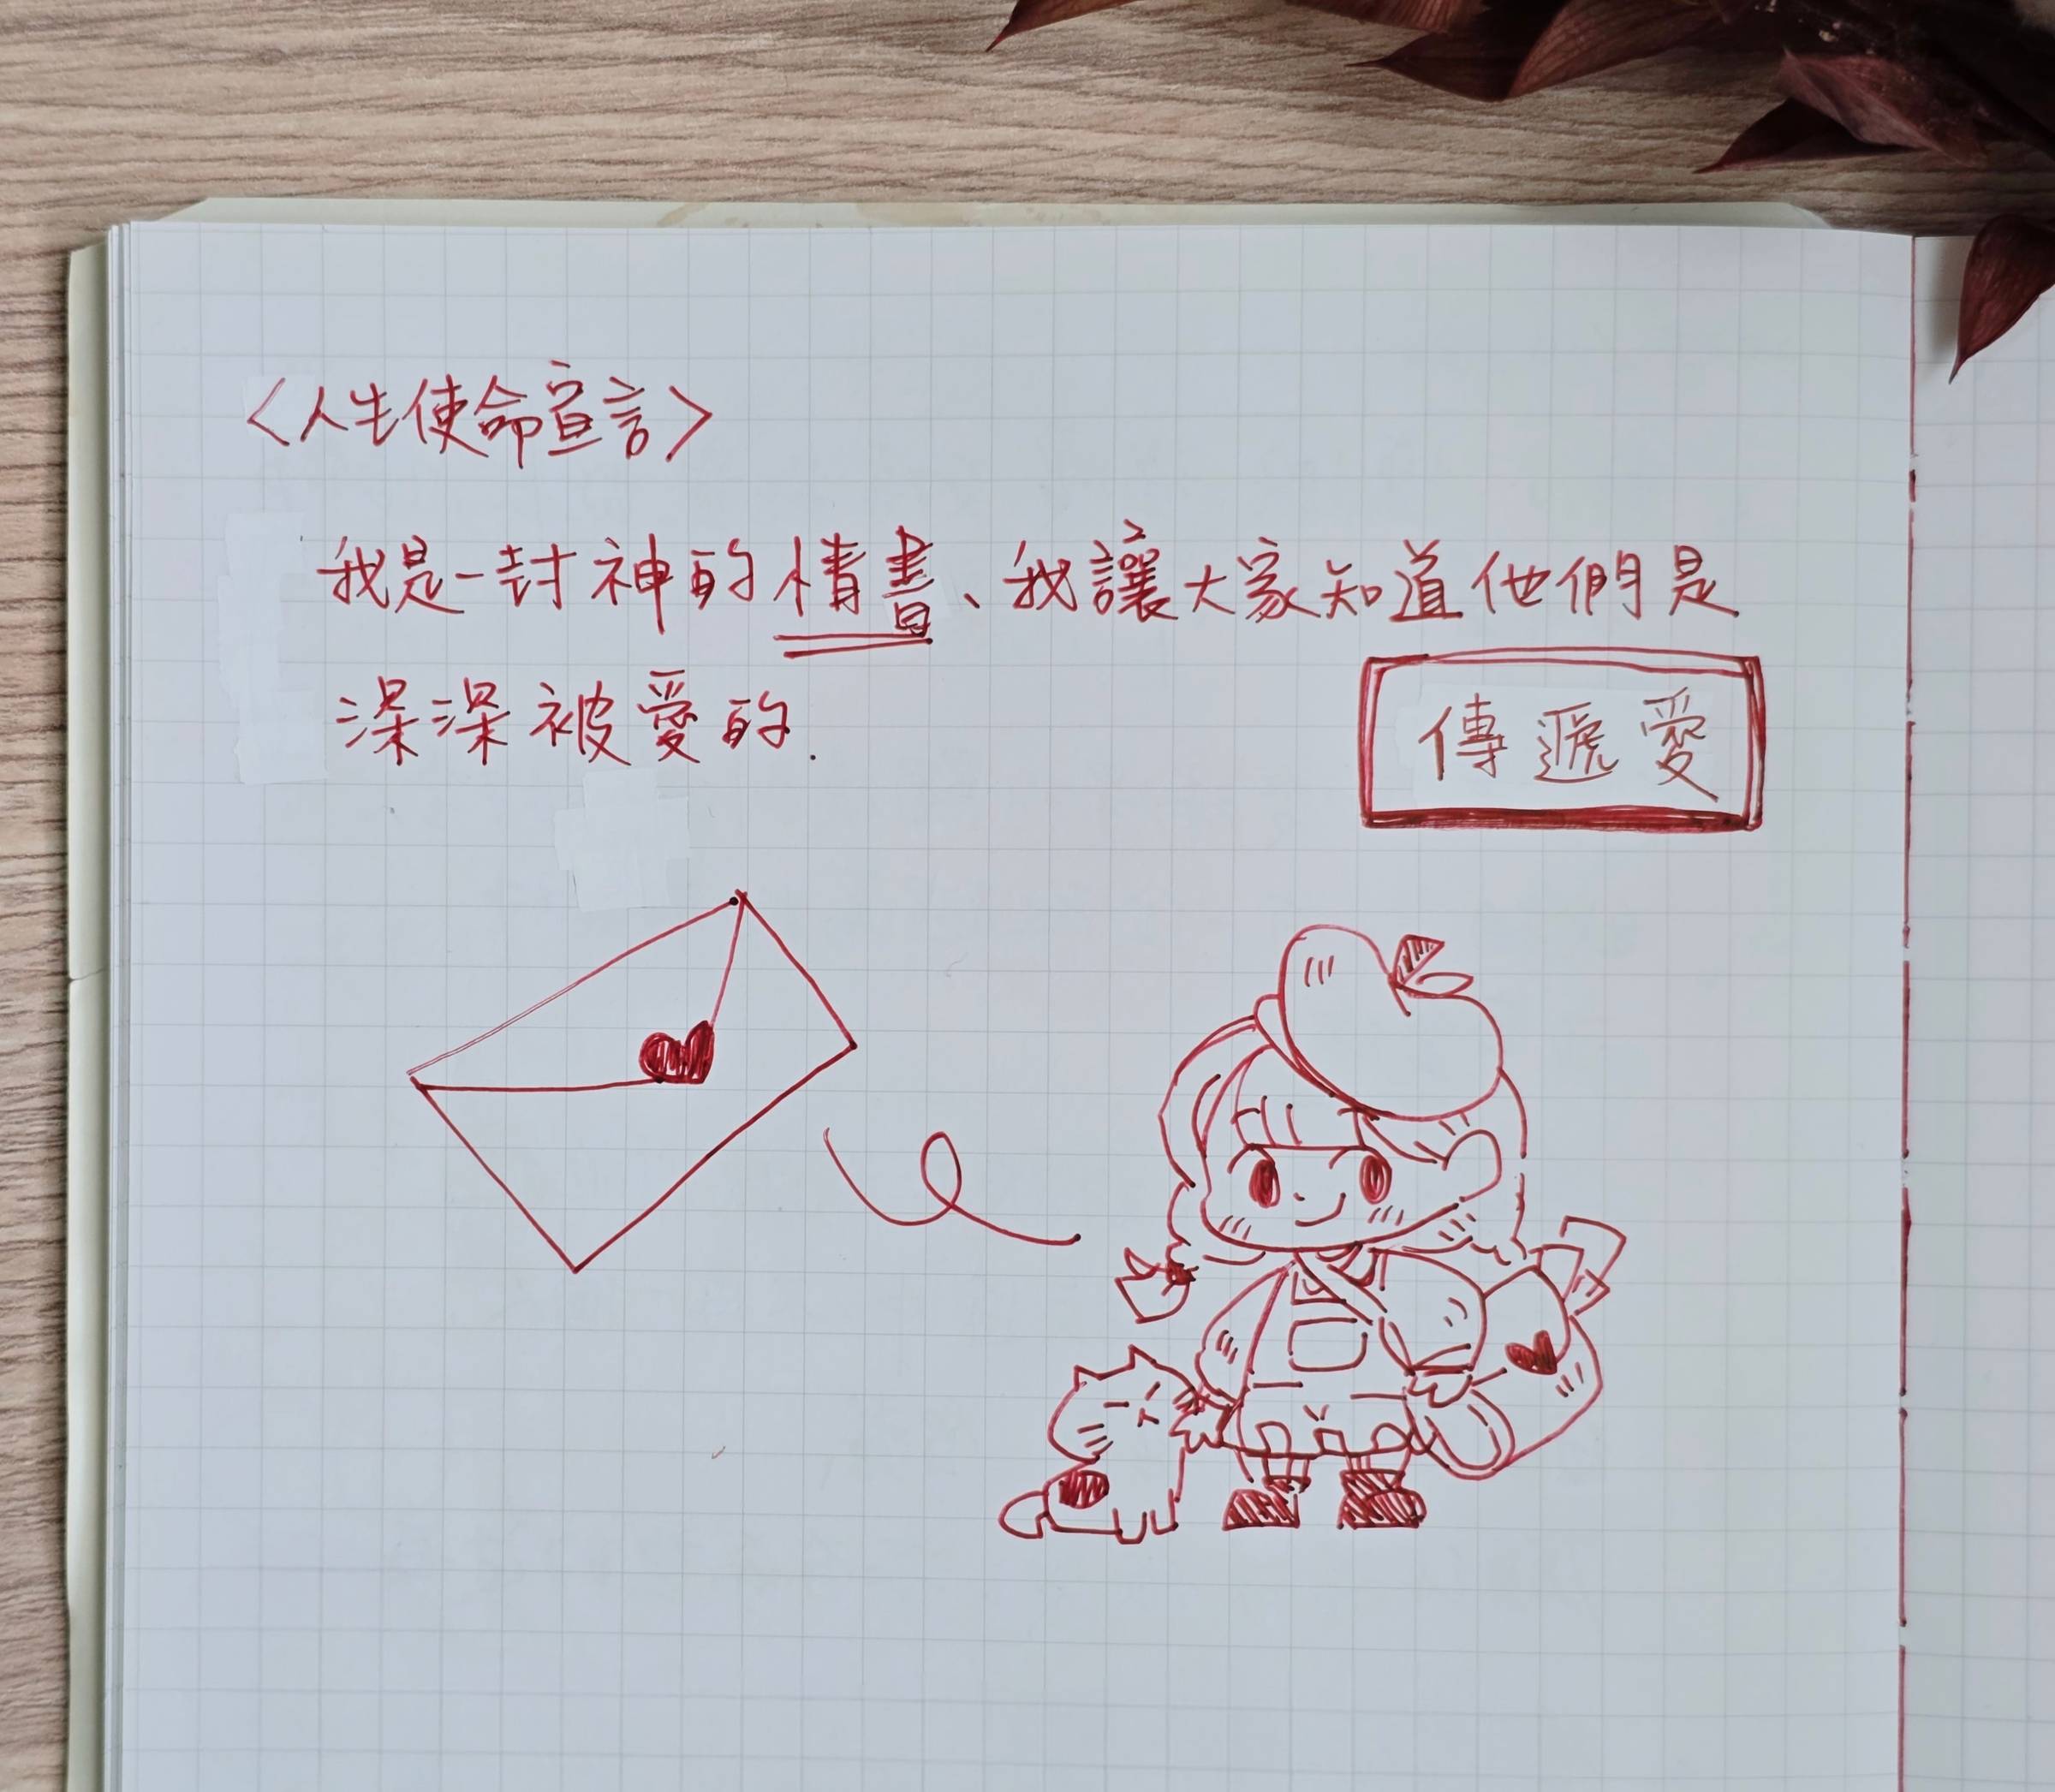 <人生使命宣言>
我是一封神的情書、我讓大家知道他們是
深深被愛的.
傳遞愛